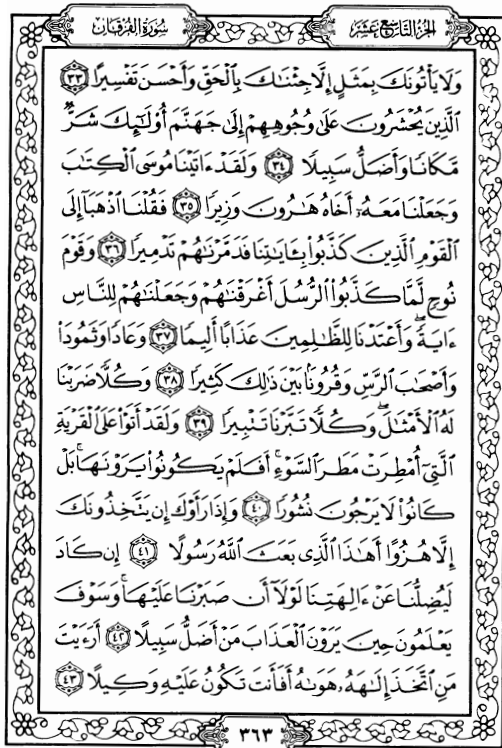 الجزء التاسع عشر
سورة الفرقان
وَلَا يَأْتُونَكَ بِمَثَلٍ إِلَّا جِئْنَٰكَ بِٱلْحَقِّ وَأَحْسَنَ تَفْسِيرًا ٣٣
ٱلَّذِينَ يُحْشَرُونَ عَلَىٰ وُجُوهِهِمْ إِلَىٰ جَهَنَّمَ أُو۟لَٰٓئِكَ شَرٌّ
مَّكَانًا وَأَضَلُّ سَبِيلًا ٣٤ وَلَقَدْ ءَاتَيْنَا مُوسَى ٱلْكِتَٰبَ
وَجَعَلْنَا مَعَهُۥٓ أَخَاهُ هَٰرُونَ وَزِيرًا ٣٥ فَقُلْنَا ٱذْهَبَآ إِلَى
ٱلْقَوْمِ ٱلَّذِينَ كَذَّبُوا۟ بِـَٔايَٰتِنَا فَدَمَّرْنَٰهُمْ تَدْمِيرًا ٣٦ وَقَوْمَ
نُوحٍ لَّمَّا كَذَّبُوا۟ ٱلرُّسُلَ أَغْرَقْنَٰهُمْ وَجَعَلْنَٰهُمْ لِلنَّاسِ
ءَايَةً ۖ وَأَعْتَدْنَا لِلظَّٰلِمِينَ عَذَابًا أَلِيمًا ٣٧ وَعَادًا وَثَمُودَا۟
وَأَصْحَٰبَ ٱلرَّسِّ وَقُرُونًۢا بَيْنَ ذَٰلِكَ كَثِيرًا ٣٨ وَكُلًّا ضَرَبْنَا
لَهُ ٱلْأَمْثَٰلَ ۖ وَكُلًّا تَبَّرْنَا تَتْبِيرًا ٣٩ وَلَقَدْ أَتَوْا۟ عَلَى ٱلْقَرْيَةِ
ٱلَّتِىٓ أُمْطِرَتْ مَطَرَ ٱلسَّوْءِ ۚ أَفَلَمْ يَكُونُوا۟ يَرَوْنَهَا ۚ بَلْ
كَانُوا۟ لَا يَرْجُونَ نُشُورًا ٤٠ وَإِذَا رَأَوْكَ إِن يَتَّخِذُونَكَ
إِلَّا هُزُوًا أَهَٰذَا ٱلَّذِى بَعَثَ ٱللَّهُ رَسُولًا ٤١ إِن كَادَ
لَيُضِلُّنَا عَنْ ءَالِهَتِنَا لَوْلَآ أَن صَبَرْنَا عَلَيْهَا ۚ وَسَوْفَ
يَعْلَمُونَ حِينَ يَرَوْنَ ٱلْعَذَابَ مَنْ أَضَلُّ سَبِيلًا ٤٢ أَرَءَيْتَ
مَنِ ٱتَّخَذَ إِلَٰهَهُۥ هَوَىٰهُ أَفَأَنتَ تَكُونُ عَلَيْهِ وَكِيلًا ٤٣
٣٦٣